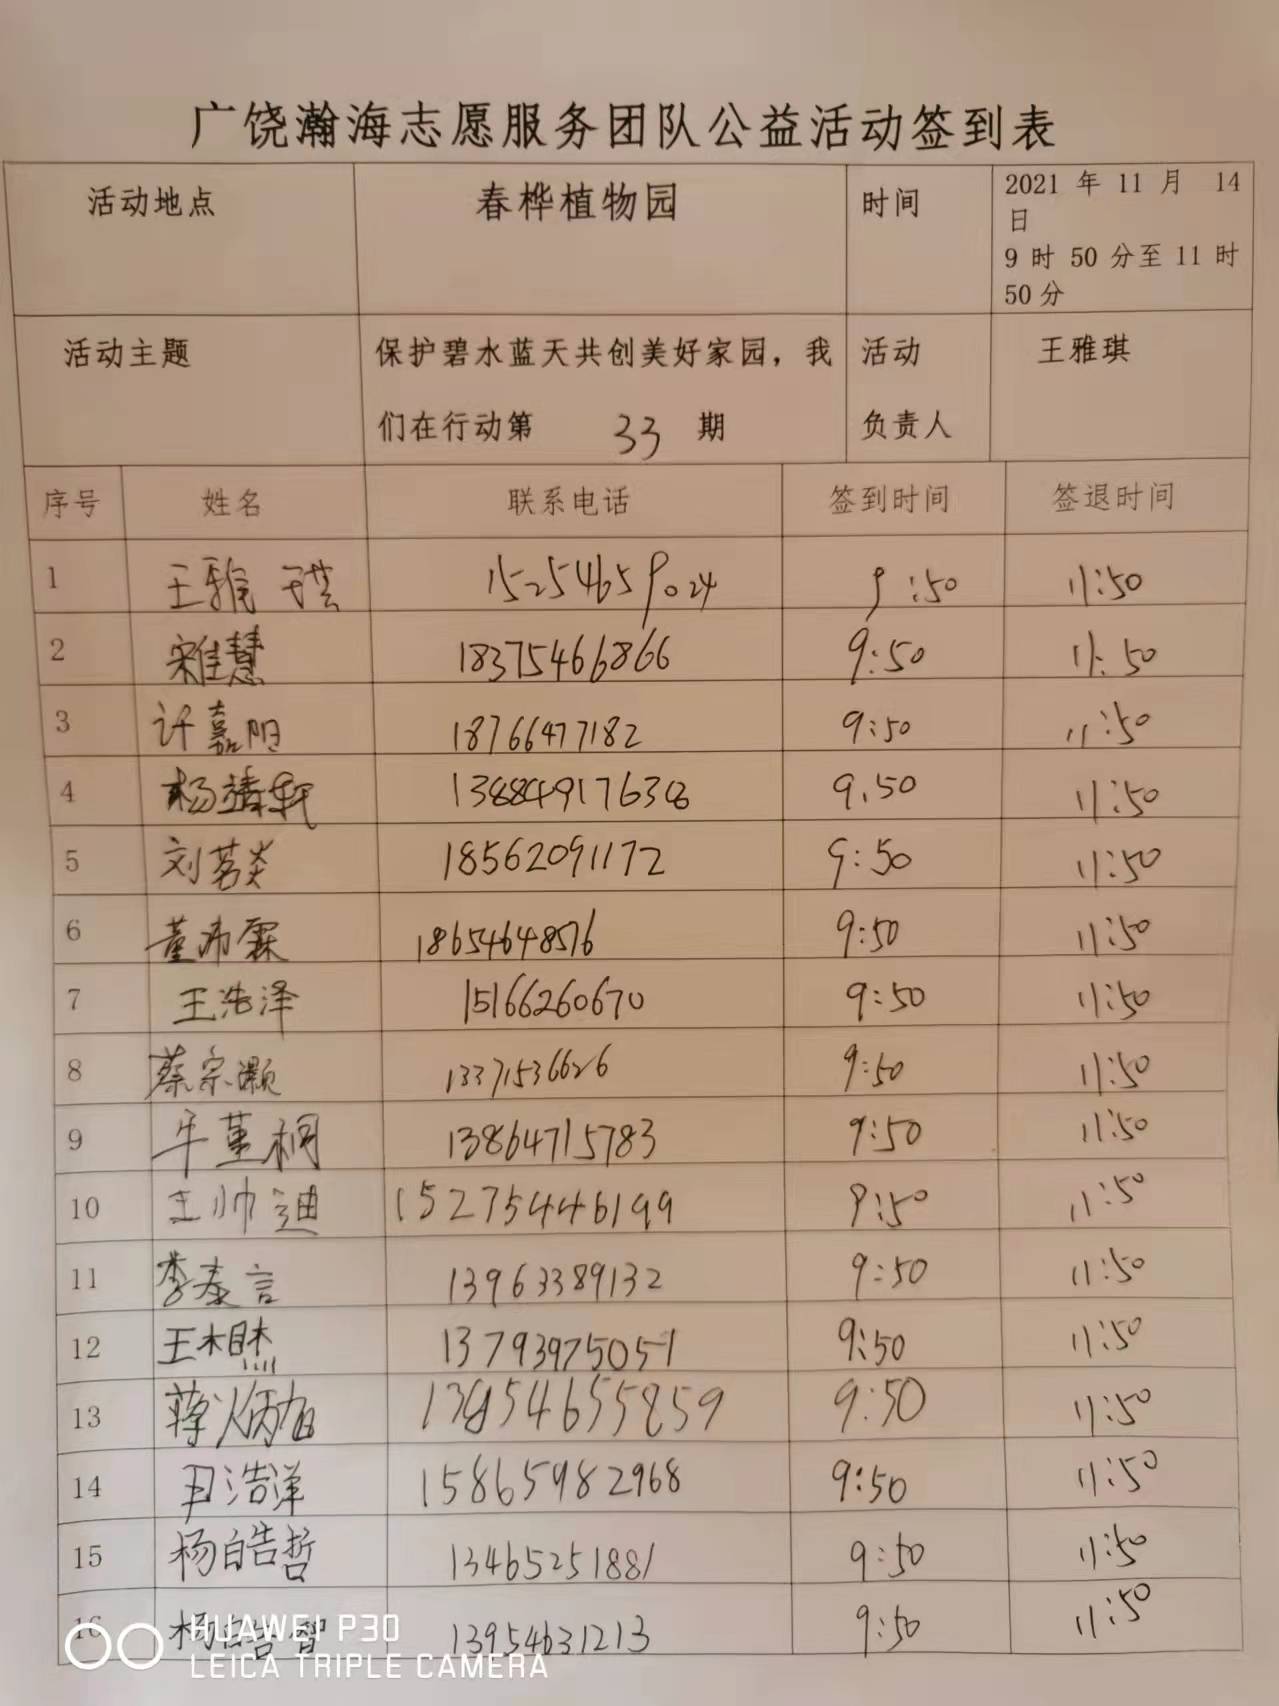 广饶瀚海志愿服务团队公益活动签到表
活动地点 春桦植物园 时间 2021 年 11 月 14
日
9 时 50 分至 11 时
50 分
活动主题 保护碧水蓝天共创美好家园，我 活动 王雅琪
们在行动第 33 期 负责人
序号 姓名 联系电话 签到时间 签退时间
1 王雅琪 15254659024 9:50 11:50
2 宋佳慧 18375466866 9:50 11:50
3 许嘉阳 18766477182 9:50 11:50
4 杨靖轩 9.50 11:50
5 刘茗炎 18562091172 9:50 11:50
6 董沛霖 18654648576 9:50 11:50
7 王浩泽 15166260670 9:50 11:50
8 蔡宗灏 13371536626 9:50 11:50
9 牟堇桐 13864715783 9:50 11:50
10 王帅迪 152754446199 9:50 11:50
11 李泰言 13963389132 9:50 11:50
12 王相杰 13793975051 9:50 11:50
13 蒋炳旭 9:50 11:50
14 尹浩洋 15865982968 9:50 11:50
15 杨皓哲 13465251881 9:50 11:50
16 杨皓智 13954631213 9:50 11:50
HUAWEI P30
LEICA TRIPLE CAMERA